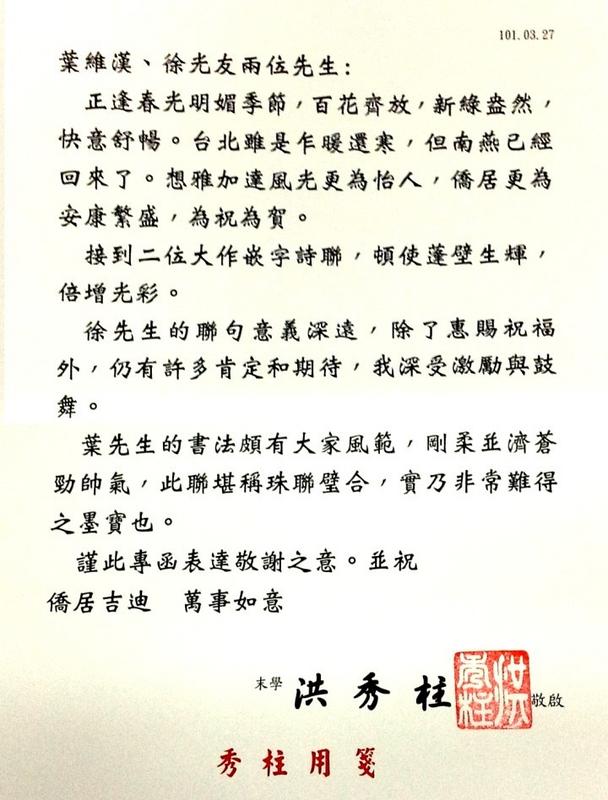 101.03.27
葉維漢、徐光友兩位先生：
正逢春光明媚季節，百花齊放，新綠盎然，
快意舒暢。台北雖是乍暖還寒，但南燕已經
回來了。想雅加達風光更為怡人，僑居更為
安康繁盛，為祝為賀。
接到二位大作嵌字詩聯，頓使蓬壁生輝，
倍增光彩。
徐先生的聯句意義深遠，除了惠賜祝福
外，仍有許多肯定和期待，我深受激勵與鼓
舞。
葉先生的書法頗有大家風範，剛柔並濟蒼
勁帥氣，此聯堪稱珠聯璧合，實乃非常難得
之墨寶也。
謹此專函表達敬謝之意。並祝
僑居吉迪　萬事如意
末學 洪秀柱 敬啟
秀柱用箋